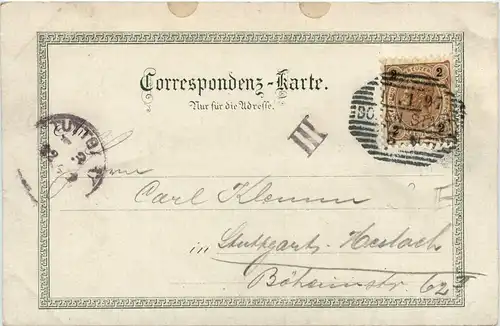 Correspondenz-Karte.
Nur für die Adresse.
2 2
III
Carl Klemm
in Stuttgart-Heslach
Böheimstr 62 II